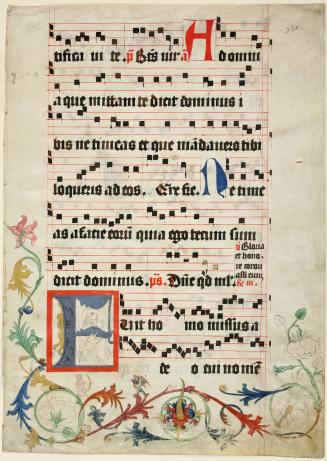 tifici ui te. p̄s Bt̄s uir a A d omni
a que mittam te dicit dominus i
bis ne timeas et que mādauero tibi
loqueris ad eos. N e time
as a facie eorū quia ego tecum sum
dicit dominus. ps. Dn̄e qd
v Gloria
et hono
re coron
asti eum
F Uit ho mo missus a
de o cui nomē